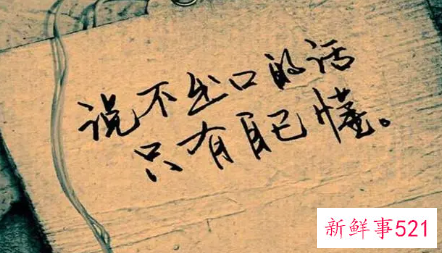 说不出口的话
只有自己懂。
新鲜事521